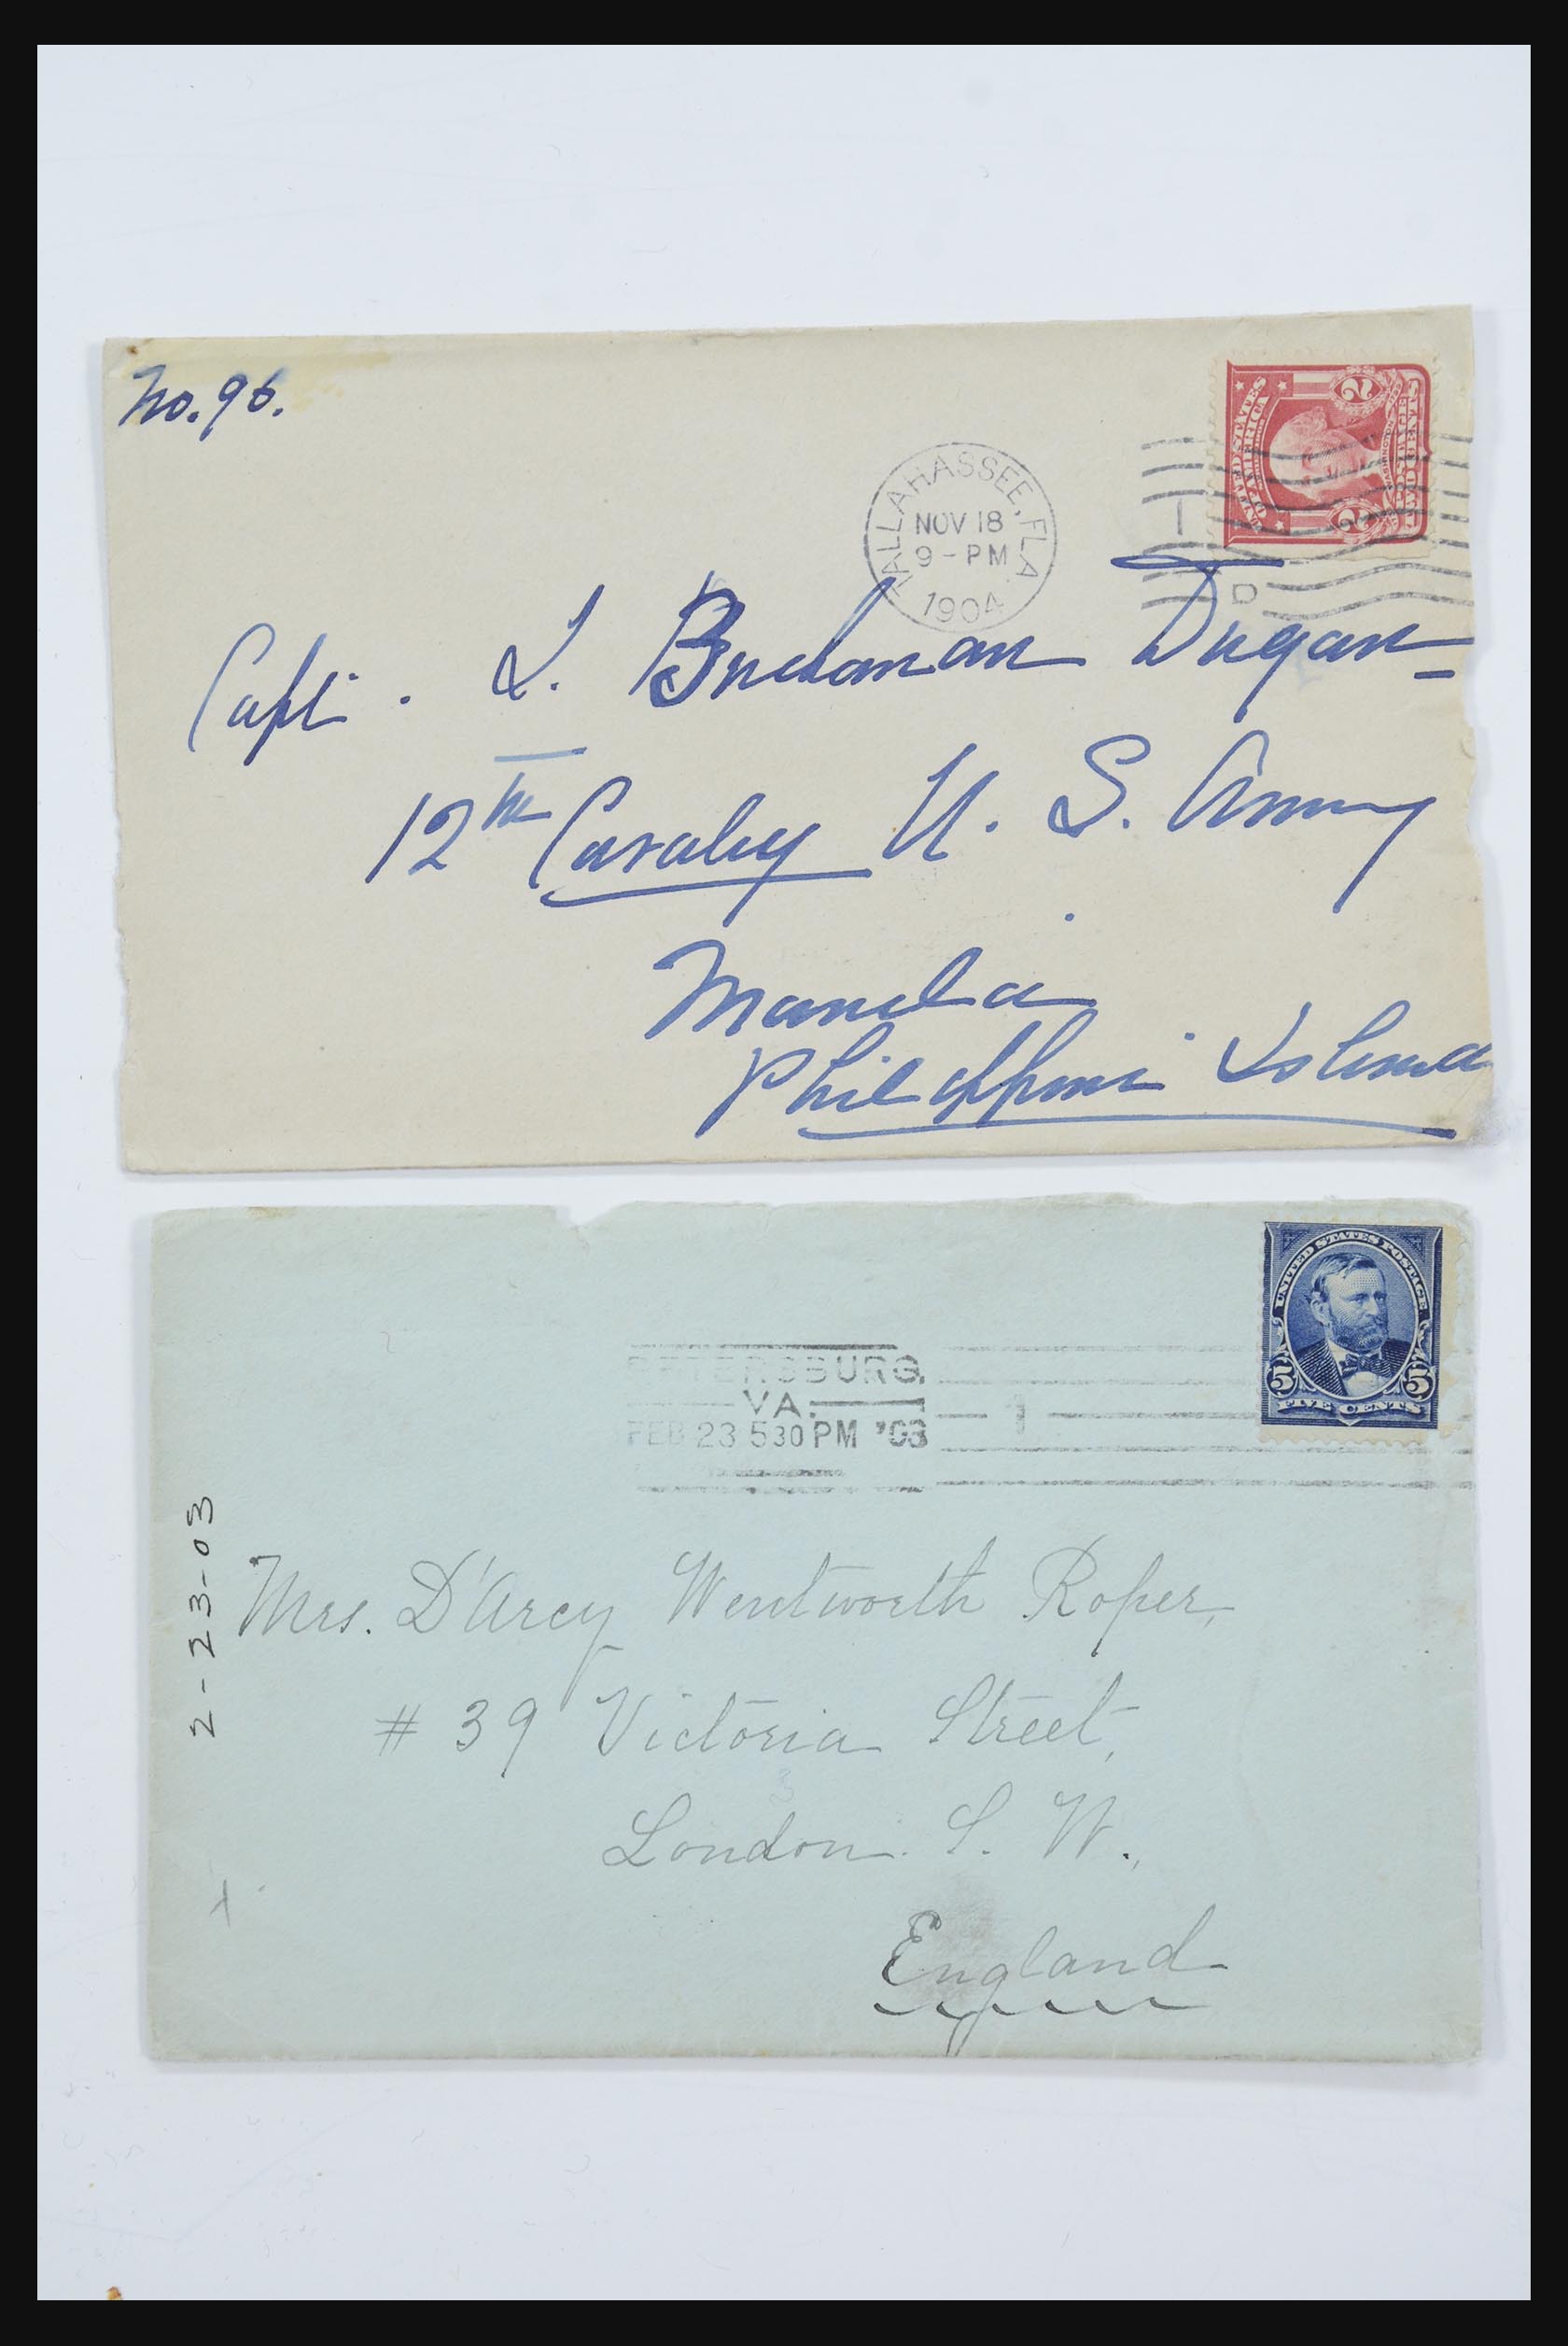 No. 96.
TALLAHASSEE, FLA.
NOV 18
9 - PM
1904
1
D
UNITED STATES
OF AMERICA
2 2
WASHINGTON
POSTAGE
TWO CENTS
Capt. Buchanan Dugan
12th Cavalry U. S. Army
Manila
Philippine Island
UNITED STATES POSTAGE
5 5
FIVE CENTS
PETERSBURG,
VA.
FEB 23 530 PM '03
1
2-23-03
Mrs. D'Arcy Wentworth Roper,
# 39 Victoria Street,
London. S. W.,
England